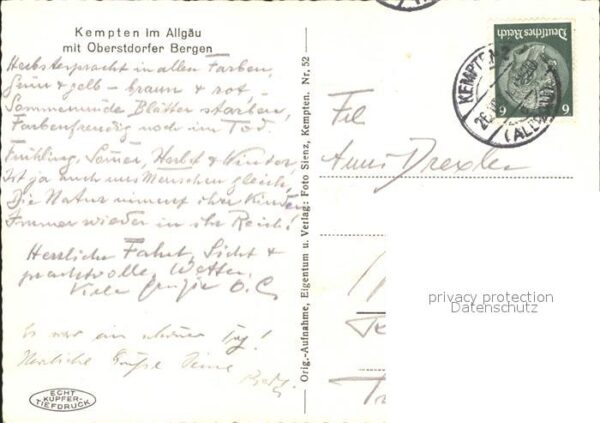 Kempten im Allgäu
mit Oberstdorfer Bergen
Herbstespracht in allen Farben,
Grün & gelb - braun & rot -
Sommermüde Blätter starben,
Farbenfreudig noch im Tod.
Frühling, Sommer, Herbst & Winter,
Ist ja auch uns Menschen gleich,
Die Natur nimmt ihre Kinder
Immer wieder in ihr Reich!
Herrliche Fahrt, Sicht &
prachtvolles Wetter.
Viele Grüße
Es war ein schöner Tag!
Herzliche Grüße Deine
ECHT
KUPFER-
TIEFDRUCK
Orig.-Aufnahme, Eigentum u. Verlag: Foto Sienz, Kempten. Nr. 52
Deutsches Reich
6 6
KEMPTEN
(ALLGÄU)
Frl
Drexler
privacy protection
Datenschutz